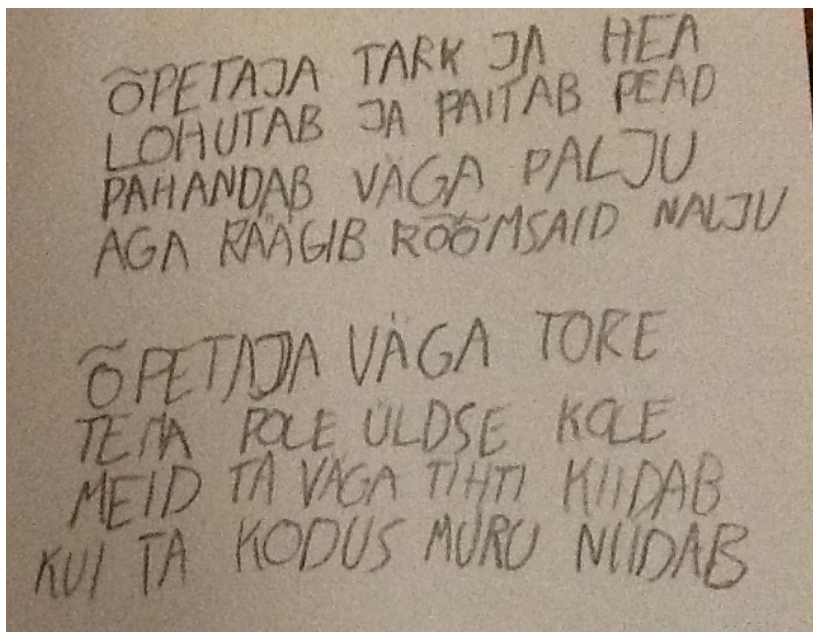 ÕPETAJA TARK JA HEA
LOHUTAB JA PAITAB PEAD
PAHANDAB VÄGA PALJU
AGA RÄÄGIB RÕÕMSAID NALJU
ÕPETAJA VÄGA TORE
TEMA POLE ÜLDSE KOLE
MEID TA VÄGA TIHTI KIIDAB
KUI TA KODUS MURU NIIDAB